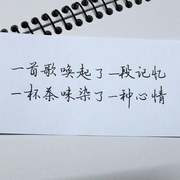 一首歌唤起了一段记忆
一杯茶味染了一种心情